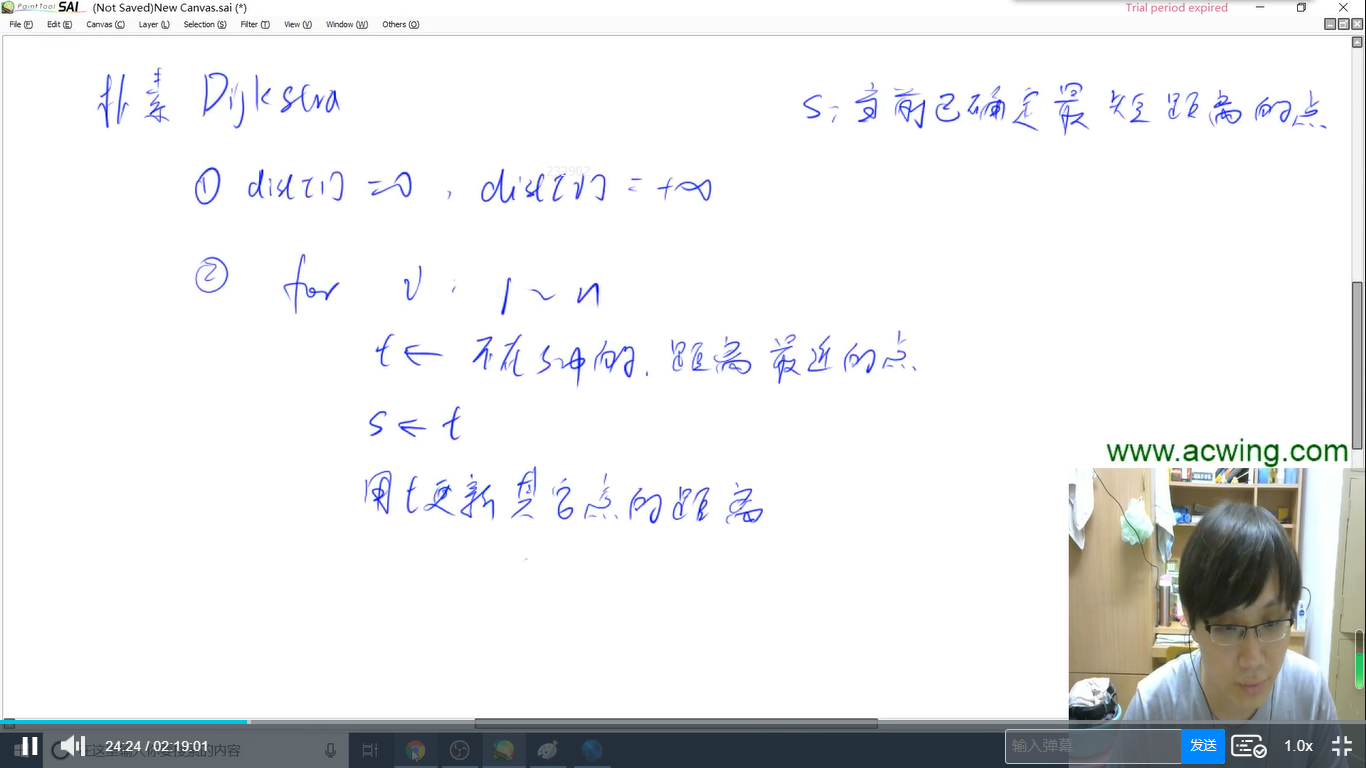 PaintTool SAI (Not Saved)New Canvas.sai (*) Trial period expired
File (F) Edit (E) Canvas (C) Layer (L) Selection (S) Filter (T) View (V) Window (W) Others (O)
朴素 Dijkstra
S: 当前已确定最短距离的点
232902
① dist[1] = 0, dist[v] = +∞
② for v: 1~n
t ← 不在S中的, 距离最近的点
S ← t
用t更新其它点的距离
www.acwing.com
24:24 / 02:19:01
输入弹幕 发送 1.0x